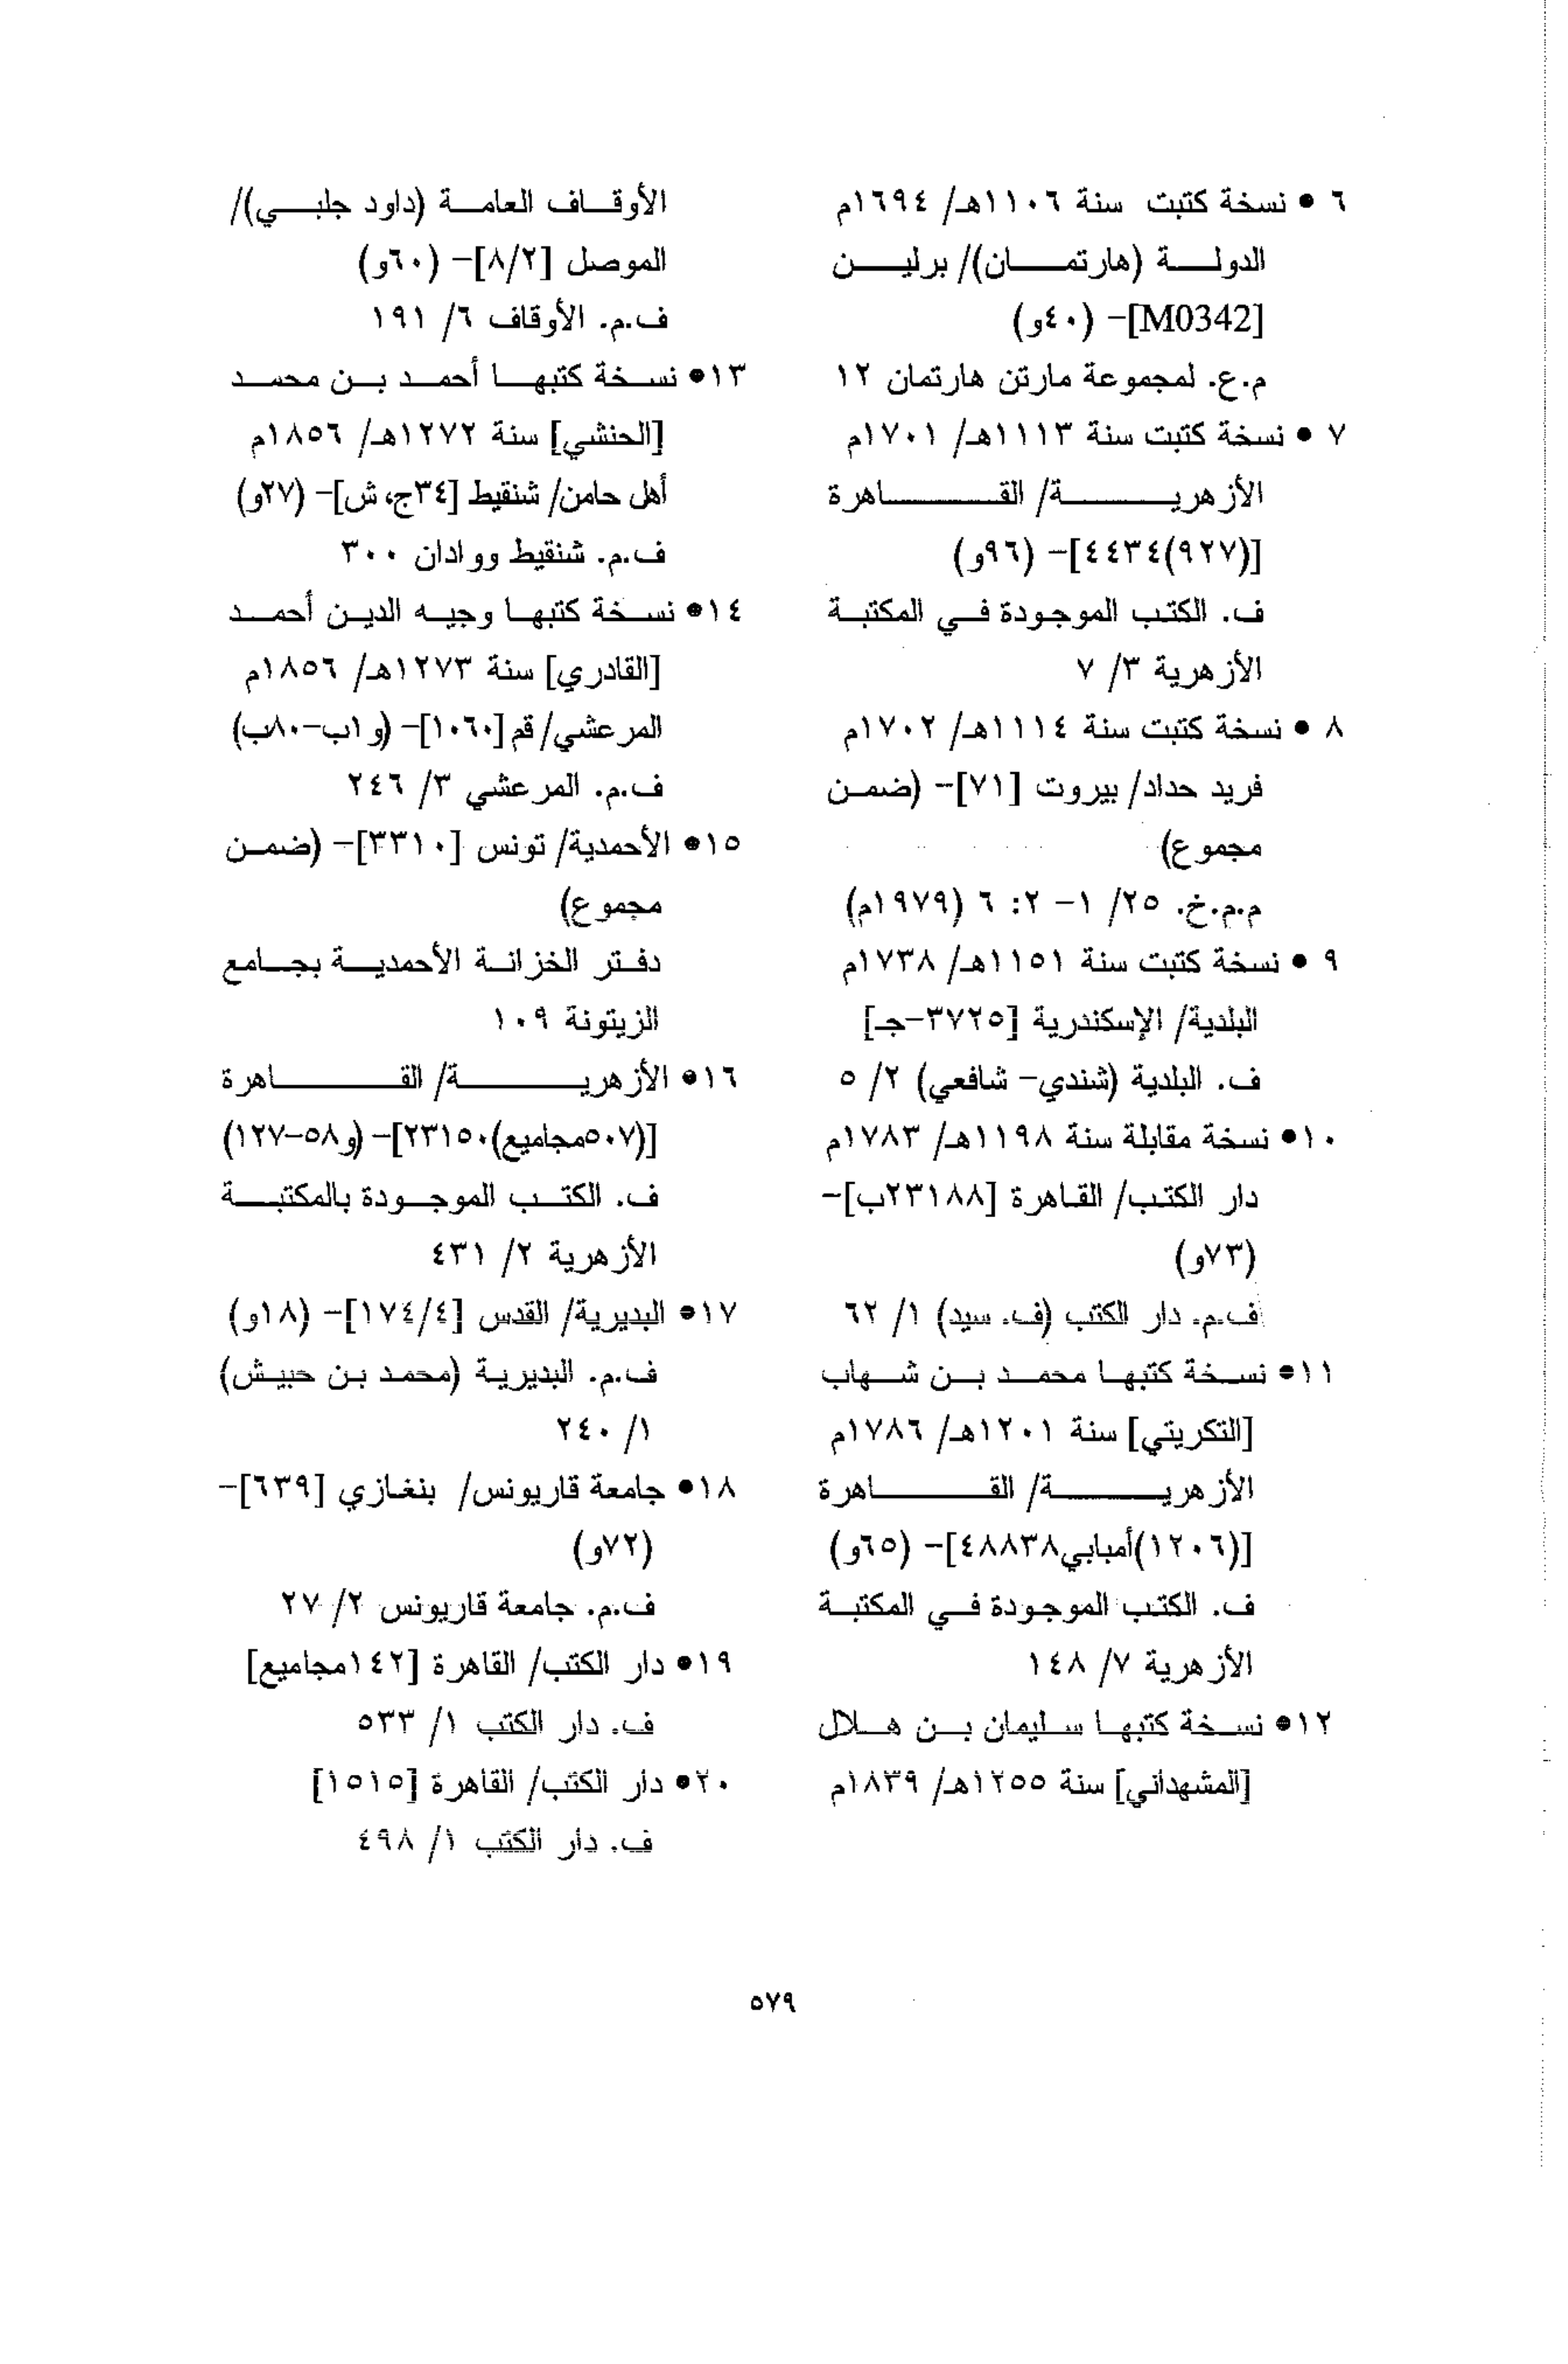 ٦ • نسخة كتبت سنة ١١٠٦هـ/ ١٦٩٤م
الدولة (هارتمان)/ برلين
[M0342]- (٤٠و)
م.ع. لمجموعة مارتن هارتمان ١٢
٧ • نسخة كتبت سنة ١١١٣هـ/ ١٧٠١م
الأزهرية/ القاهرة
[(٩٢٧)٤٤٣٤]- (٩٦و)
ف. الكتب الموجودة في المكتبة
الأزهرية ٣/ ٧
٨ • نسخة كتبت سنة ١١١٤هـ/ ١٧٠٢م
فريد حداد/ بيروت [٧١]- (ضمن
مجموع)
م.م.خ. ٢٥/ ١- ٢: ٦ (١٩٧٩م)
٩ • نسخة كتبت سنة ١١٥١هـ/ ١٧٣٨م
البلدية/ الإسكندرية [٣٧٢٥-جـ]
ف. البلدية (شندي- شافعي) ٢/ ٥
١٠• نسخة مقابلة سنة ١١٩٨هـ/ ١٧٨٣م
دار الكتب/ القاهرة [٢٣١٨٨ب]-
(٧٣و)
ف.م. دار الكتب (ف. سيد) ١/ ٦٢
١١• نسخة كتبها محمد بن شهاب
[التكريتي] سنة ١٢٠١هـ/ ١٧٨٦م
الأزهرية/ القاهرة
[(١٢٠٦)أمبابي٤٨٨٣٨]- (٦٥و)
ف. الكتب الموجودة في المكتبة
الأزهرية ٧/ ١٤٨
١٢• نسخة كتبها سليمان بن هلال
[المشهداني] سنة ١٢٥٥هـ/ ١٨٣٩م
الأوقاف العامة (داود جلبي)/
الموصل [٨/٢]- (٦٠و)
ف.م. الأوقاف ٦/ ١٩١
١٣• نسخة كتبها أحمد بن محمد
[الحنشي] سنة ١٢٧٢هـ/ ١٨٥٦م
أهل حامن/ شنقيط [٣٤ج، ش]- (٢٧و)
ف.م. شنقيط ووادان ٣٠٠
١٤• نسخة كتبها وجيه الدين أحمد
[القادري] سنة ١٢٧٣هـ/ ١٨٥٦م
المرعشي/ قم [١٠٦٠]- (و١ب-٨٠ب)
ف.م. المرعشي ٣/ ٢٤٦
١٥• الأحمدية/ تونس [٣٣١٠]- (ضمن
مجموع)
دفتر الخزانة الأحمدية بجامع
الزيتونة ١٠٩
١٦• الأزهرية/ القاهرة
[(٥٠٧مجاميع)٢٣١٥٠]- (و٥٨-١٢٧)
ف. الكتب الموجودة بالمكتبة
الأزهرية ٢/ ٤٣١
١٧• البديرية/ القدس [١٧٤/٤]- (١٨و)
ف.م. البديرية (محمد بن حبيش)
١/ ٢٤٠
١٨• جامعة قاريونس/ بنغازي [٦٣٩]-
(٧٢و)
ف.م. جامعة قاريونس ٢/ ٢٧
١٩• دار الكتب/ القاهرة [١٤٢مجاميع]
ف. دار الكتب ١/ ٥٣٣
٢٠• دار الكتب/ القاهرة [١٥١٥]
ف. دار الكتب ١/ ٤٩٨
٥٧٩